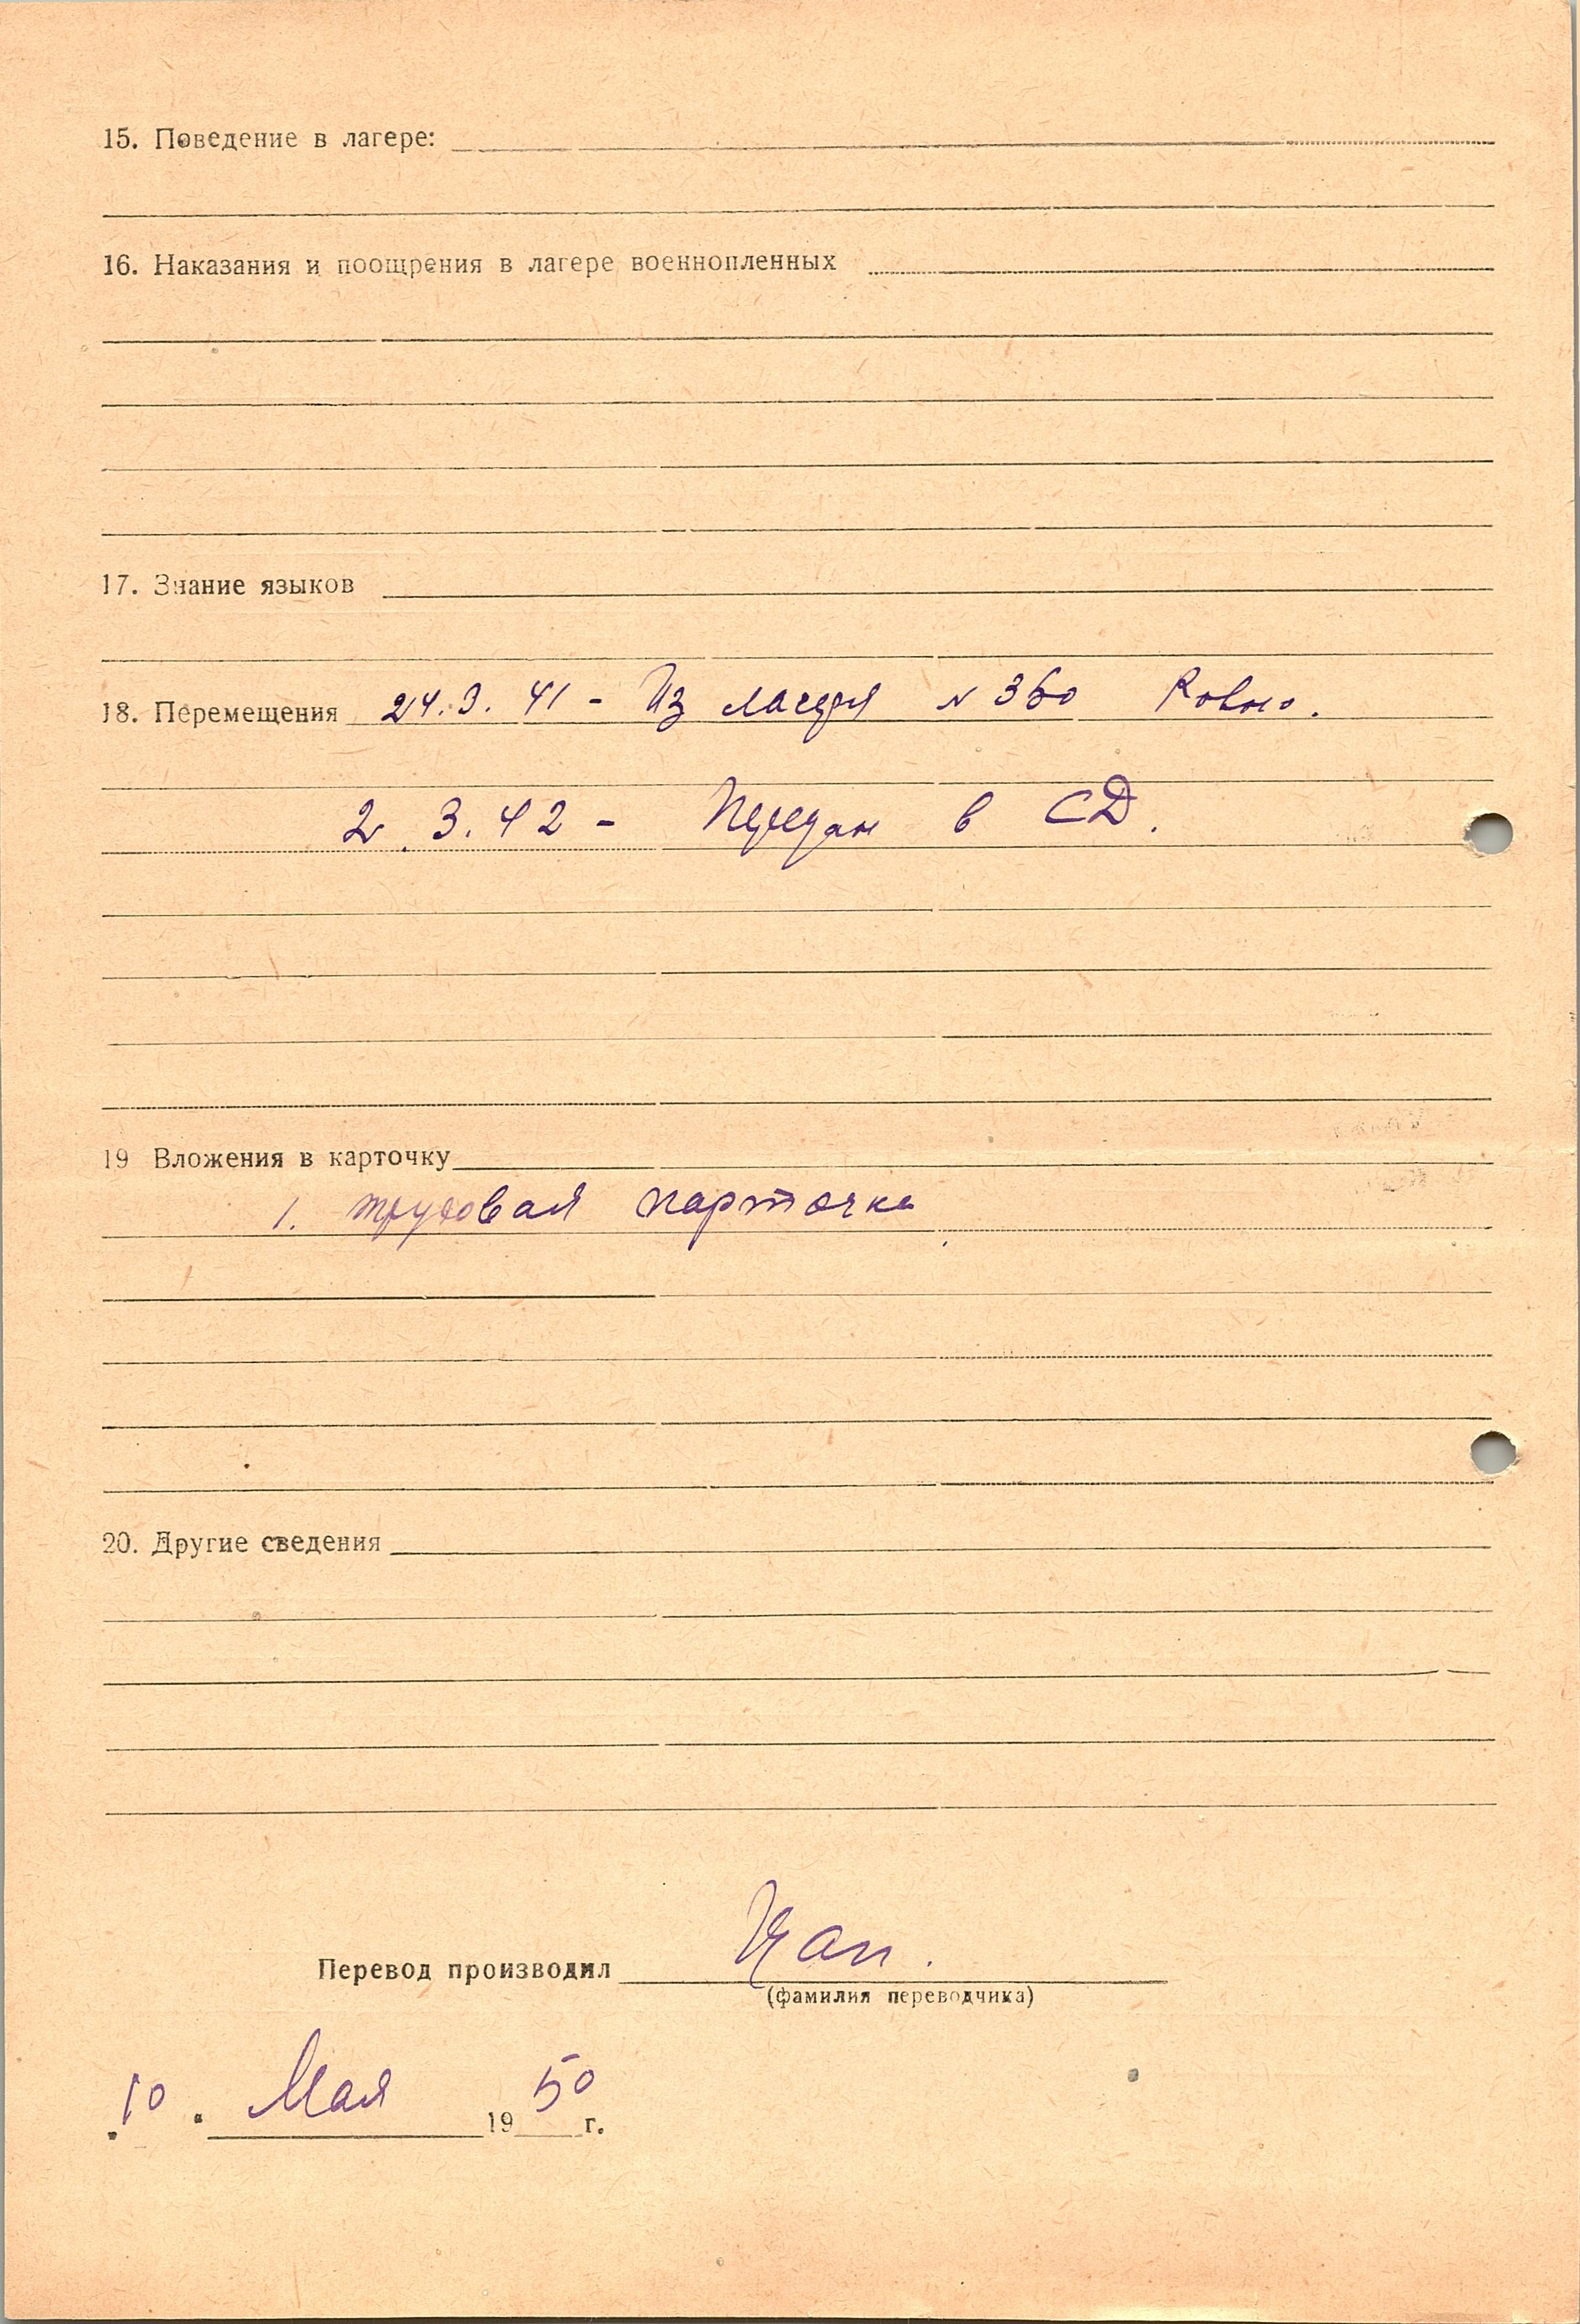 15. Поведение в лагере:
16. Наказания и поощрения в лагере военнопленных
17. Знание языков
18. Перемещения 24.9.41 - Из лагеря N 360 Ровно.
2.3.42 - Передан в СД.
19 Вложения в карточку
1. трудовая карточка
20. Другие сведения
Перевод производил
(фамилия переводчика)
10. Мая 1950 г.